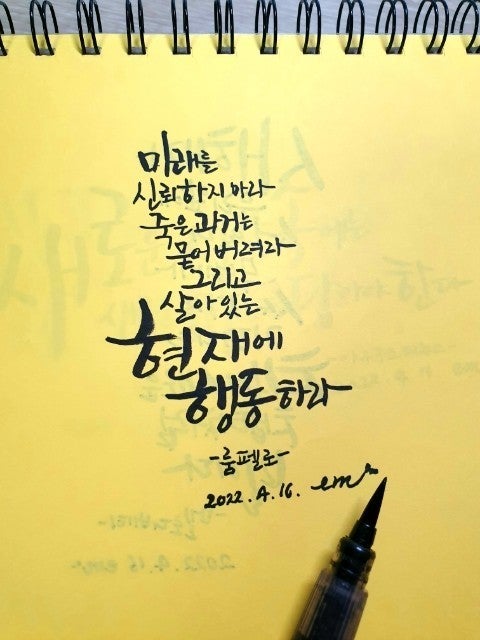 미래를
신뢰하지 마라
죽은 과거는
묻어버려라
그리고
살아있는
현재에
행동하라
-룽펠로-
2022.4.16. em